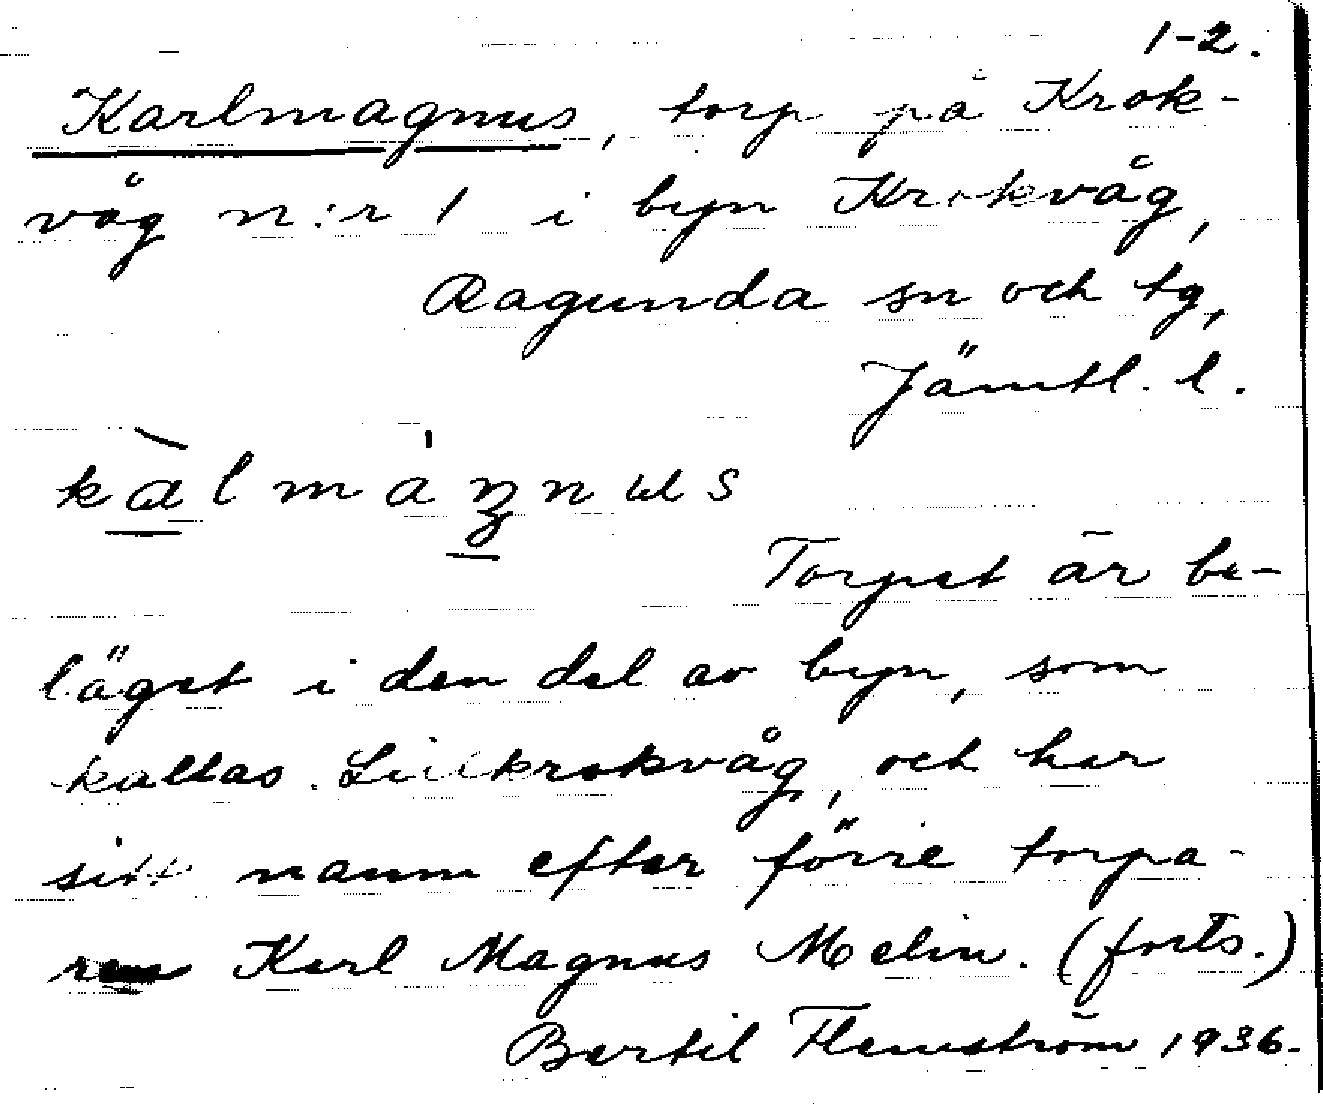 1-2.
Karlmagnus, torp på Krok-
våg n:r 1 i byn Krokvåg,
Ragunda sn och tg,
Jämtl. l.
Torpet är be-
läget i den del av byn, som
kallas Lillkrokvåg, och har
sitt namn efter förre torpa-
ren Karl Magnus Melin. (forts.)
Bertil Flemström 1936.